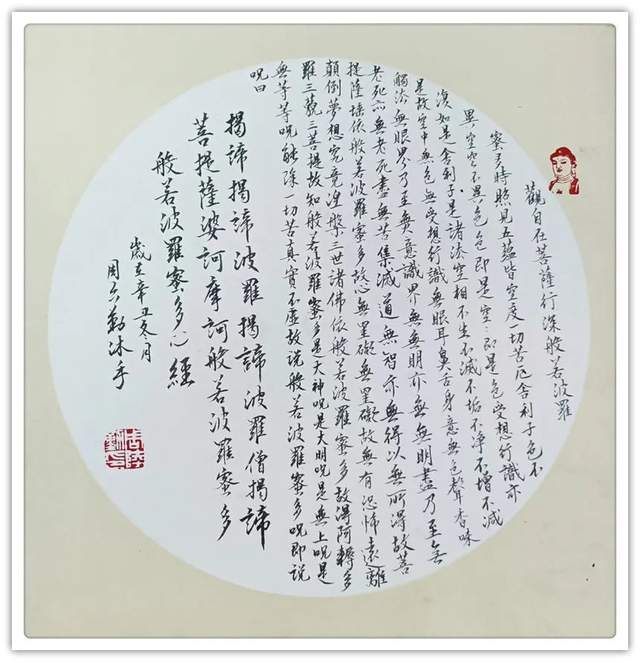 觀自在菩薩行深般若波羅
蜜多時照見五蘊皆空度一切苦厄舍利子色不
異空空不異色色即是空:即是色受想行識亦
復如是舍利子是諸法空相不生不滅不垢不净不增不減
是故空中無色無受想行識無眼耳鼻舌身意無色聲香味
觸法無眼界乃至無意識界無無明亦無無明盡乃至無
老死亦無老死盡無苦集滅道無智亦無得以無所得故菩
提薩埵依般若波羅蜜多故心無罣礙無罣礙故無有恐怖遠離
顛倒夢想究竟涅槃三世諸佛依般若波羅蜜多故得阿耨多
羅三藐三菩提故知般若波羅蜜多是大神咒是大明咒是無上咒是
無等等咒能除一切苦真實不虛故說般若波羅蜜多咒即說
咒曰
揭諦揭諦波羅揭諦波羅僧揭諦
菩提薩婆訶摩訶般若波羅蜜多
般若波羅蜜多心經
歲在辛丑冬月
周勤沐手